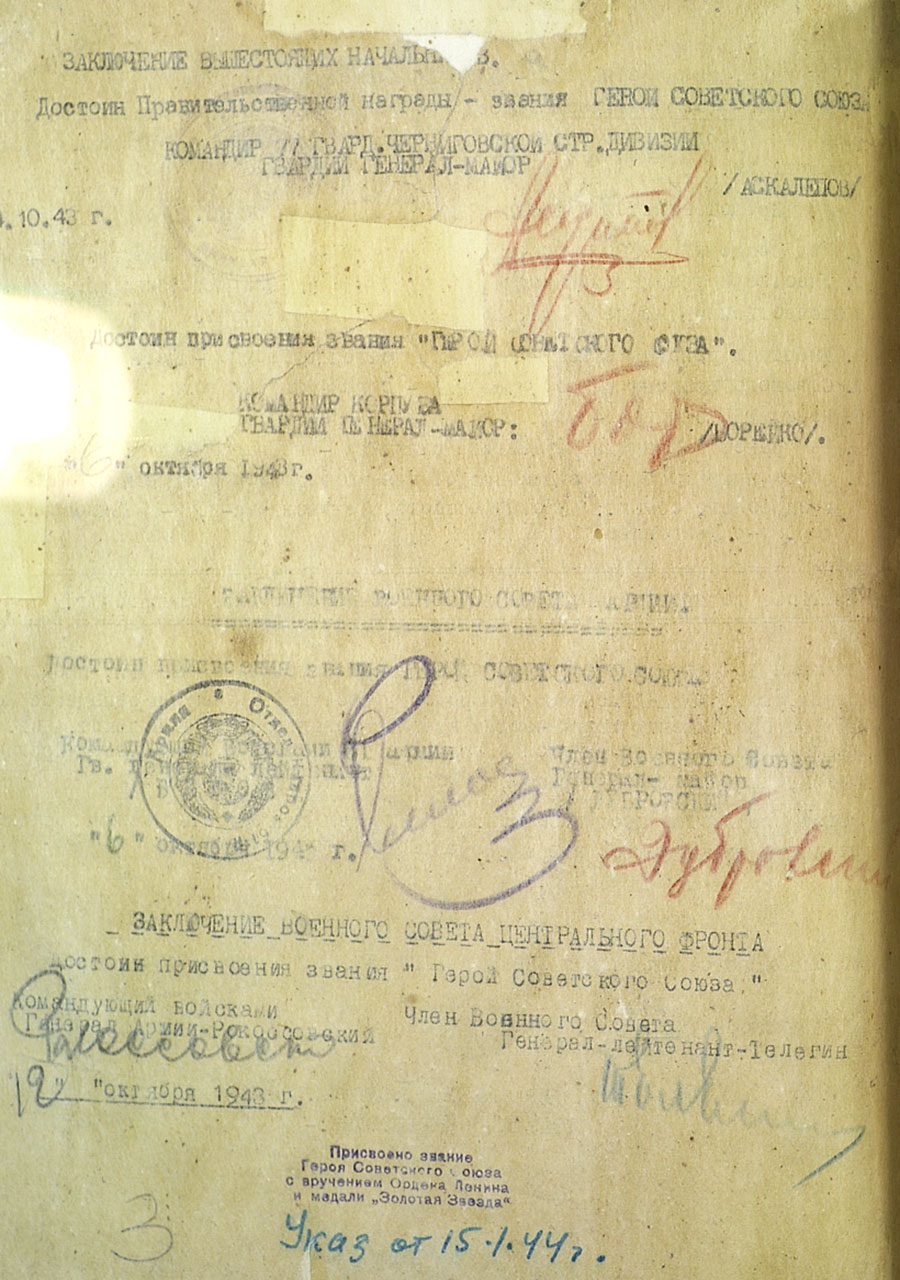 ЗАКЛЮЧЕНИЕ ВЫШЕСТОЯЩИХ НАЧАЛЬНИКОВ.
Достоин Правительственной награды - звания ГЕРОЙ СОВЕТСКОГО СОЮЗА
КОМАНДИР 77 ГВАРД.ЧЕРНИГОВСКОЙ СТР.ДИВИЗИИ
ГВАРДИИ ГЕНЕРАЛ-МАЙОР
/АСКАЛЕПОВ/
.10.43 г.
Достоин присвоения звания "ГЕРОЙ СОВЕТСКОГО СОЮЗА".
КОМАНДИР КОРПУСА
ГВАРДИИ ГЕНЕРАЛ-МАЙОР:
"6" октября 1943г.
ЗАКЛЮЧЕНИЕ ВОЕННОГО СОВЕТА АРМИИ
Достоин присвоения звания ГЕРОЙ СОВЕТСКОГО СОЮЗА
Командующий войсками 61 армии
Член Военного Совета
Гв. Генерал-лейтенант
Генерал-майор
Дубровский
"6" октября 1943 г.
ЗАКЛЮЧЕНИЕ ВОЕННОГО СОВЕТА ЦЕНТРАЛЬНОГО ФРОНТА
Достоин присвоения звания "Герой Советского Союза."
Командующий войсками
Генерал Армии-Рокоссовский
Член Военного Совета
Генерал-лейтенант-Телегин
12" "октября 1943 г.
Присвоено звание
Героя Советского Союза
с вручением Ордена Ленина
и медали „Золотая Звезда"
Указ от 15.1.44г.
3